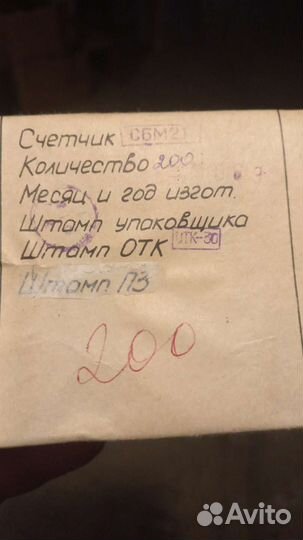 Счетчик СБМ21
Количество 200
Месяц и год изгот.
Штамп упаковщика
Штамп ОТК ОТК-30
Штамп ПЗ
200
Avito